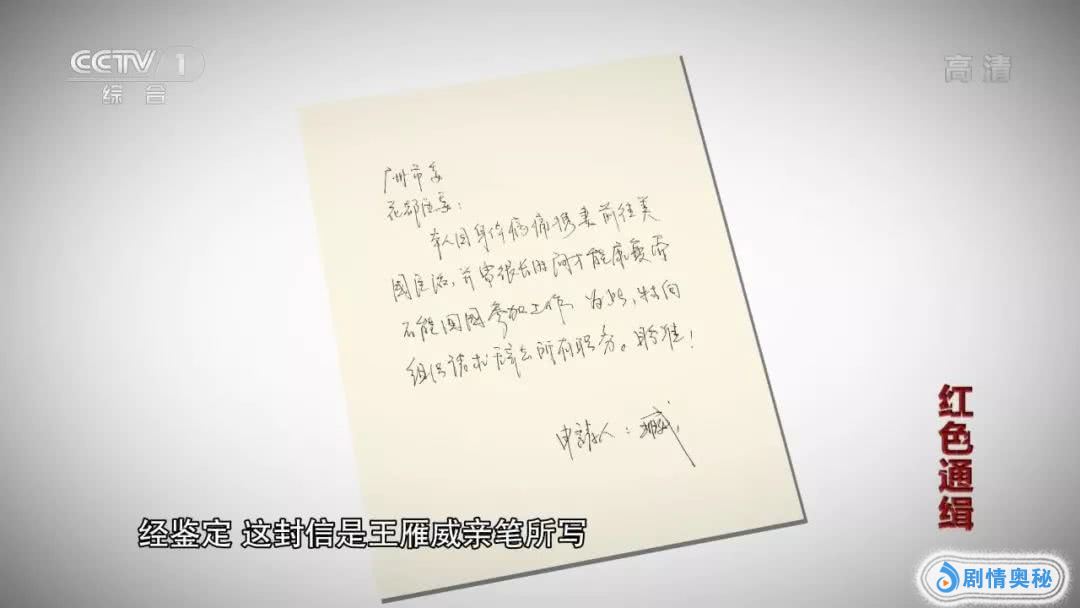 CCTV 1
综合
高清
广州市委
花都区委：
本人因身体伤痛携妻前往美
国医治，并需很长时间才能康复而
不能回国参加工作，为此，特向
组织请求辞去所有职务。盼准！
申请人：
红色通缉
经鉴定 这封信是王雁威亲笔所写
剧情奥秘